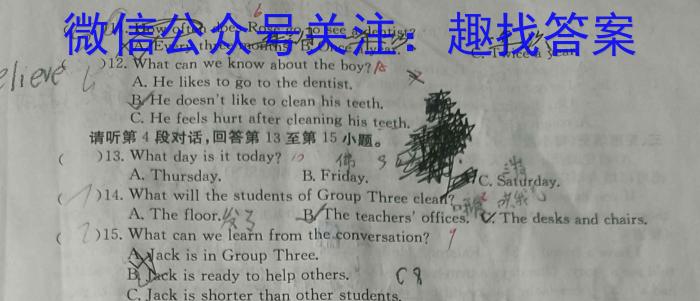 微信公众号关注：趣找答案
How often does Rose go to see a dentist?
A. Every three months. B. Once a year. C. Twice a year.
)12. What can we know about the boy?
A. He likes to go to the dentist.
B. He doesn't like to clean his teeth.
C. He feels hurt after cleaning his teeth.
请听第 4 段对话,回答第 13 至第 15 小题。
( )13. What day is it today?
A. Thursday. B. Friday. C. Saturday.
( )14. What will the students of Group Three clean?
A. The floor. B. The teachers' offices. C. The desks and chairs.
( )15. What can we learn from the conversation?
A. Jack is in Group Three.
B. Jack is ready to help others.
C. Jack is shorter than other students.